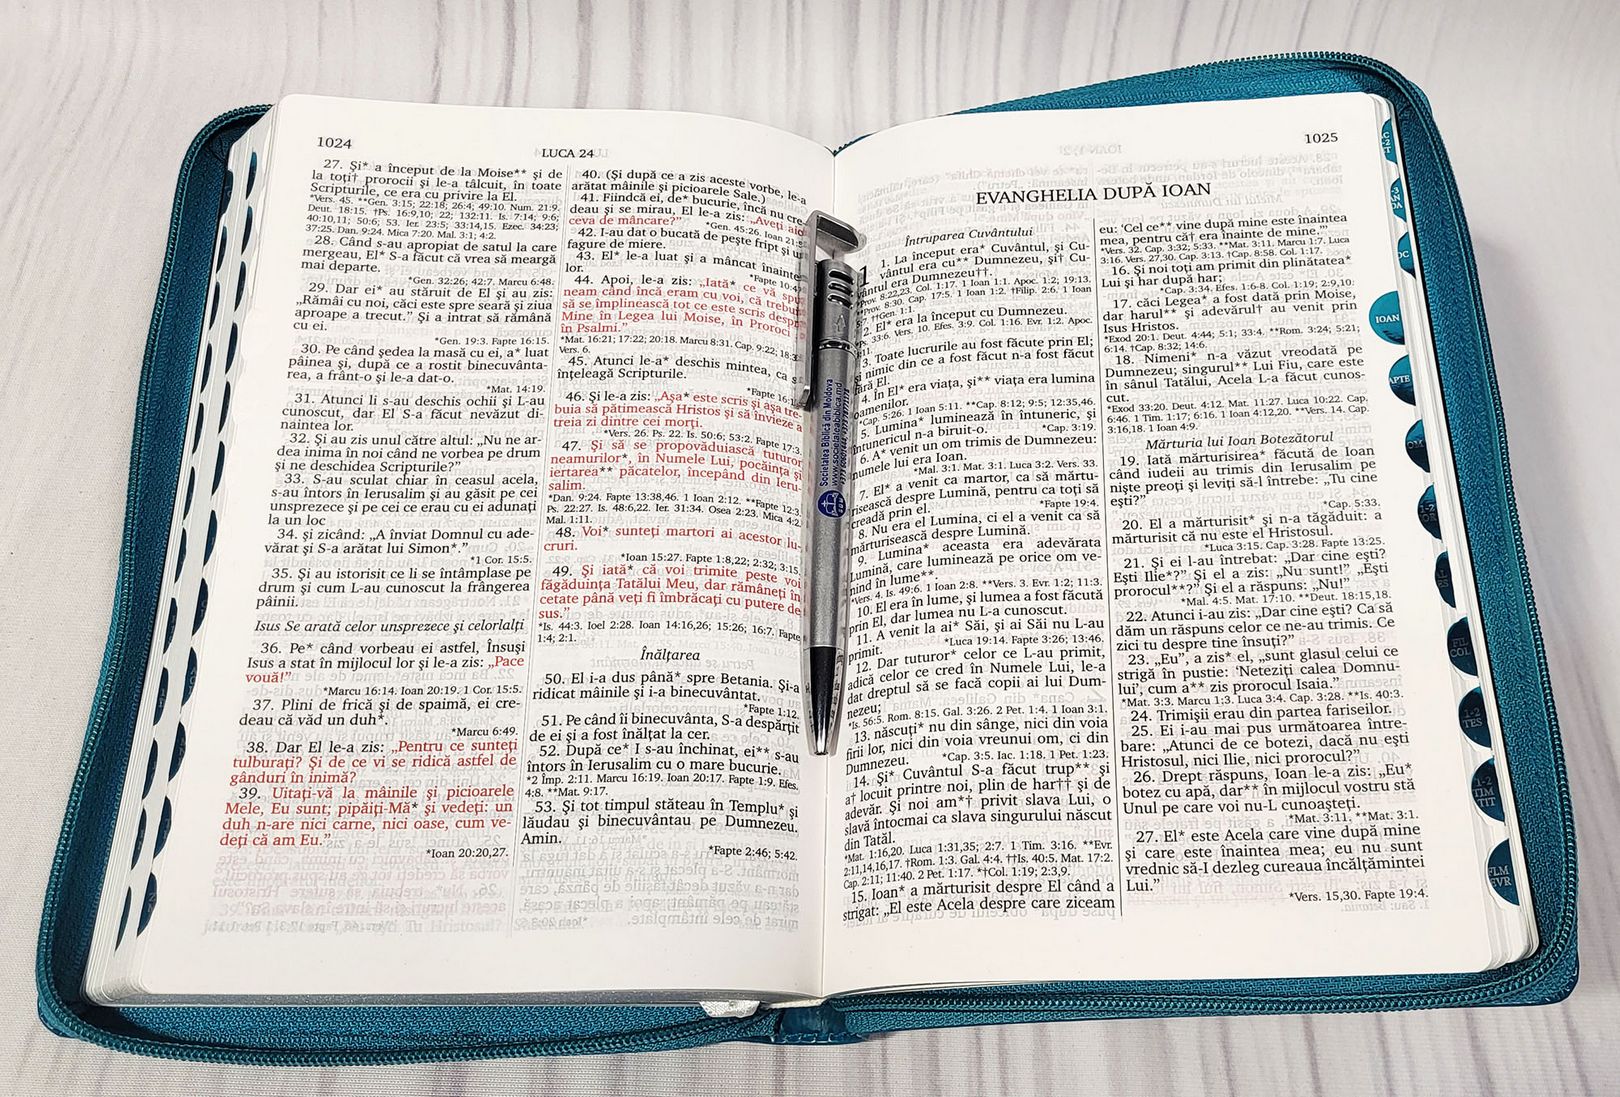 1024
LUCA 24
27. Şi* a început de la Moise** şi de
la toţi† prorocii şi le-a tâlcuit, în toate
Scripturile, ce era cu privire la El.
*Vers. 45. **Gen. 3:15; 22:18; 26:4; 49:10. Num. 21:9.
Deut. 18:15. †Ps. 16:9,10; 22; 132:11. Is. 7:14; 9:6;
40:10,11; 50:6; 53. Ier. 23:5; 33:14,15. Ezec. 34:23;
37:25. Dan. 9:24. Mica 7:20. Mal. 3:1; 4:2.
28. Când s-au apropiat de satul la care
mergeau, El* S-a făcut că vrea să meargă
mai departe.
*Gen. 32:26; 42:7. Marcu 6:48.
29. Dar ei* au stăruit de El şi au zis:
„Rămâi cu noi, căci este spre seară şi ziua
aproape a trecut.” Şi a intrat să rămână
cu ei.
*Gen. 19:3. Fapte 16:15.
30. Pe când şedea la masă cu ei, a* luat
pâinea şi, după ce a rostit binecuvânta-
rea, a frânt-o şi le-a dat-o.
*Mat. 14:19.
31. Atunci li s-au deschis ochii şi L-au
cunoscut, dar El S-a făcut nevăzut di-
naintea lor.
32. Şi au zis unul către altul: „Nu ne ar-
dea inima în noi când ne vorbea pe drum
şi ne deschidea Scripturile?”
33. S-au sculat chiar în ceasul acela,
s-au întors în Ierusalim şi au găsit pe cei
unsprezece şi pe cei ce erau cu ei adunaţi
la un loc
34. şi zicând: „A înviat Domnul cu ade-
vărat şi S-a arătat lui Simon*.”
*1 Cor. 15:5.
35. Şi au istorisit ce li se întâmplase pe
drum şi cum L-au cunoscut la frângerea
pâinii.
Isus Se arată celor unsprezece şi celorlalţi
36. Pe* când vorbeau ei astfel, Însuşi
Isus a stat în mijlocul lor şi le-a zis: „Pace
vouă!”
*Marcu 16:14. Ioan 20:19. 1 Cor. 15:5.
37. Plini de frică şi de spaimă, ei cre-
deau că văd un duh*.
*Marcu 6:49.
38. Dar El le-a zis: „Pentru ce sunteţi
tulburaţi? Şi de ce vi se ridică astfel de
gânduri în inimă?
39. Uitaţi-vă la mâinile şi picioarele
Mele, Eu sunt; pipăiţi-Mă* şi vedeţi: un
duh n-are nici carne, nici oase, cum ve-
deţi că am Eu.”
*Ioan 20:20,27.
40. (Şi după ce a zis aceste vorbe, le-a
arătat mâinile şi picioarele Sale.)
41. Fiindcă ei, de* bucurie, încă nu cre-
deau şi se mirau, El le-a zis: „Aveţi aici
ceva de mâncare?”
*Gen. 45:26. Ioan 21:5
42. I-au dat o bucată de peşte fript şi un
fagure de miere.
43. El* le-a luat şi a mâncat înaintea
lor.
*Fapte 10:4
44. Apoi, le-a zis: „Iată* ce vă spu
neam când încă eram cu voi, că trebu
să se împlinească tot ce este scris despr
Mine în Legea lui Moise, în Proroci
în Psalmi.”
*Mat. 16:21; 17:22; 20:18. Marcu 8:31. Cap. 9:22; 18:3
Vers. 6.
45. Atunci le-a* deschis mintea, ca s
înţeleagă Scripturile.
*Fapte 16:1
46. Şi le-a zis: „Aşa* este scris şi aşa tre-
buia să pătimească Hristos şi să învieze a
treia zi dintre cei morţi.
*Vers. 26. Ps. 22. Is. 50:6; 53:2. Fapte 17:3.
47. Şi să se propovăduiască tuturor
neamurilor*, în Numele Lui, pocăinţa şi
iertarea** păcatelor, începând din Ieru-
salim.
*Dan. 9:24. Fapte 13:38,46. 1 Ioan 2:12. **Fapte 12:3.
Ps. 22:27. Is. 48:6,22. Ier. 31:34. Osea 2:23. Mica 4:2.
Mal. 1:11.
48. Voi* sunteţi martori ai acestor lu-
cruri.
*Ioan 15:27. Fapte 1:8,22; 2:32; 3:15.
49. Şi iată* că voi trimite peste voi
făgăduinţa Tatălui Meu, dar rămâneţi în
cetate până veţi fi îmbrăcaţi cu putere de
sus.”
*Is. 44:3. Ioel 2:28. Ioan 14:16,26; 15:26; 16:7. Fapte
1:4; 2:1.
Înălţarea
50. El i-a dus până* spre Betania. Şi-a
ridicat mâinile şi i-a binecuvântat.
*Fapte 1:12.
51. Pe când îi binecuvânta, S-a despărţit
de ei şi a fost înălţat la cer.
52. După ce* I s-au închinat, ei** s-au
întors în Ierusalim cu o mare bucurie.
*2 Împ. 2:11. Marcu 16:19. Ioan 20:17. Fapte 1:9. Efes.
4:8. **Mat. 9:17.
53. Şi tot timpul stăteau în Templu* şi
lăudau şi binecuvântau pe Dumnezeu.
Amin.
*Fapte 2:46; 5:42.
Societatea Biblică din Moldova
www.societateabiblica.md
1025
EVANGHELIA DUPĂ IOAN
Întruparea Cuvântului
1
1. La început era* Cuvântul, şi Cu-
vântul era cu** Dumnezeu, şi† Cu-
vântul era Dumnezeu††.
*Prov. 8:22,23. Col. 1:17. 1 Ioan 1:1. Apoc. 1:2; 19:13.
**Prov. 8:30. Cap. 17:5. 1 Ioan 1:2. †Filip. 2:6. 1 Ioan
5:7. ††Gen. 1:1.
2. El* era la început cu Dumnezeu.
*Ps. 33:6. Vers. 10. Efes. 3:9. Col. 1:16. Evr. 1:2. Apoc.
4:11.
3. Toate lucrurile au fost făcute prin El;
şi nimic din ce a fost făcut n-a fost făcut
fără El.
4. În El* era viaţa, şi** viaţa era lumina
oamenilor.
*Cap. 5:26. 1 Ioan 5:11. **Cap. 8:12; 9:5; 12:35,46.
5. Lumina* luminează în întuneric, şi
întunericul n-a biruit-o.
*Cap. 3:19.
6. A* venit un om trimis de Dumnezeu:
numele lui era Ioan.
*Mal. 3:1. Mat. 3:1. Luca 3:2. Vers. 33.
7. El* a venit ca martor, ca să mărtu-
risească despre Lumină, pentru ca toţi să
creadă prin el.
*Fapte 19:4.
8. Nu era el Lumina, ci el a venit ca să
mărturisească despre Lumină.
9. Lumina* aceasta era adevărata
Lumină, care luminează pe orice om ve-
nind în lume**.
*Vers. 4. Is. 49:6. 1 Ioan 2:8. **Vers. 3. Evr. 1:2; 11:3.
10. El era în lume, şi lumea a fost făcută
prin El, dar lumea nu L-a cunoscut.
11. A venit la ai* Săi, şi ai Săi nu L-au
primit.
*Luca 19:14. Fapte 3:26; 13:46.
12. Dar tuturor* celor ce L-au primit,
adică celor ce cred în Numele Lui, le-a
dat dreptul să se facă copii ai lui Dum-
nezeu;
*Is. 56:5. Rom. 8:15. Gal. 3:26. 2 Pet. 1:4. 1 Ioan 3:1.
13. născuţi* nu din sânge, nici din voia
firii lor, nici din voia vreunui om, ci din
Dumnezeu.
*Cap. 3:5. Iac. 1:18. 1 Pet. 1:23.
14. Şi* Cuvântul S-a făcut trup** şi
a† locuit printre noi, plin de har†† şi de
adevăr. Şi noi am*† privit slava Lui, o
slavă întocmai ca slava singurului născut
din Tatăl.
*Mat. 1:16,20. Luca 1:31,35; 2:7. 1 Tim. 3:16. **Evr.
2:11,14,16,17. †Rom. 1:3. Gal. 4:4. ††Is. 40:5. Mat. 17:2.
Cap. 2:11; 11:40. 2 Pet. 1:17. *†Col. 1:19; 2:3,9.
15. Ioan* a mărturisit despre El când a
strigat: „El este Acela despre care ziceam
eu: ‘Cel ce** vine după mine este înaintea
mea, pentru că† era înainte de mine.’”
*Vers. 32. Cap. 3:32; 5:33. **Mat. 3:11. Marcu 1:7. Luca
3:16. Vers. 27,30. Cap. 3:13. †Cap. 8:58. Col. 1:17.
16. Şi noi toţi am primit din plinătatea*
Lui şi har după har;
*Cap. 3:34. Efes. 1:6-8. Col. 1:19; 2:9,10.
17. căci Legea* a fost dată prin Moise,
dar harul** şi adevărul† au venit prin
Isus Hristos.
*Exod 20:1. Deut. 4:44; 5:1; 33:4. **Rom. 3:24; 5:21;
6:14. †Cap. 8:32; 14:6.
18. Nimeni* n-a văzut vreodată pe
Dumnezeu; singurul** Lui Fiu, care este
în sânul Tatălui, Acela L-a făcut cunos-
cut.
*Exod 33:20. Deut. 4:12. Mat. 11:27. Luca 10:22. Cap.
6:46. 1 Tim. 1:17; 6:16. 1 Ioan 4:12,20. **Vers. 14. Cap.
3:16,18. 1 Ioan 4:9.
Mărturia lui Ioan Botezătorul
19. Iată mărturisirea* făcută de Ioan
când iudeii au trimis din Ierusalim pe
nişte preoţi şi leviţi să-l întrebe: „Tu cine
eşti?”
*Cap. 5:33.
20. El a mărturisit* şi n-a tăgăduit: a
mărturisit că nu este el Hristosul.
*Luca 3:15. Cap. 3:28. Fapte 13:25.
21. Şi ei l-au întrebat: „Dar cine eşti?
Eşti Ilie*?” Şi el a zis: „Nu sunt!” „Eşti
prorocul**?” Şi el a răspuns: „Nu!”
*Mal. 4:5. Mat. 17:10. **Deut. 18:15,18.
22. Atunci i-au zis: „Dar cine eşti? Ca să
dăm un răspuns celor ce ne-au trimis. Ce
zici tu despre tine însuţi?”
23. „Eu”, a zis* el, „sunt glasul celui ce
strigă în pustie: ‘Neteziţi calea Domnu-
lui’, cum a** zis prorocul Isaia.”
*Mat. 3:3. Marcu 1:3. Luca 3:4. Cap. 3:28. **Is. 40:3.
24. Trimişii erau din partea fariseilor.
25. Ei i-au mai pus următoarea între-
bare: „Atunci de ce botezi, dacă nu eşti
Hristosul, nici Ilie, nici prorocul?”
26. Drept răspuns, Ioan le-a zis: „Eu*
botez cu apă, dar** în mijlocul vostru stă
Unul pe care voi nu-L cunoaşteţi.
*Mat. 3:11. **Mat. 3:1.
27. El* este Acela care vine după mine
şi care este înaintea mea; eu nu sunt
vrednic să-I dezleg cureaua încălţămintei
Lui.”
*Vers. 15,30. Fapte 19:4.
IOAN
FIL
COL
1-2
TES
1-2
TIM
TIT
FLM
EVR